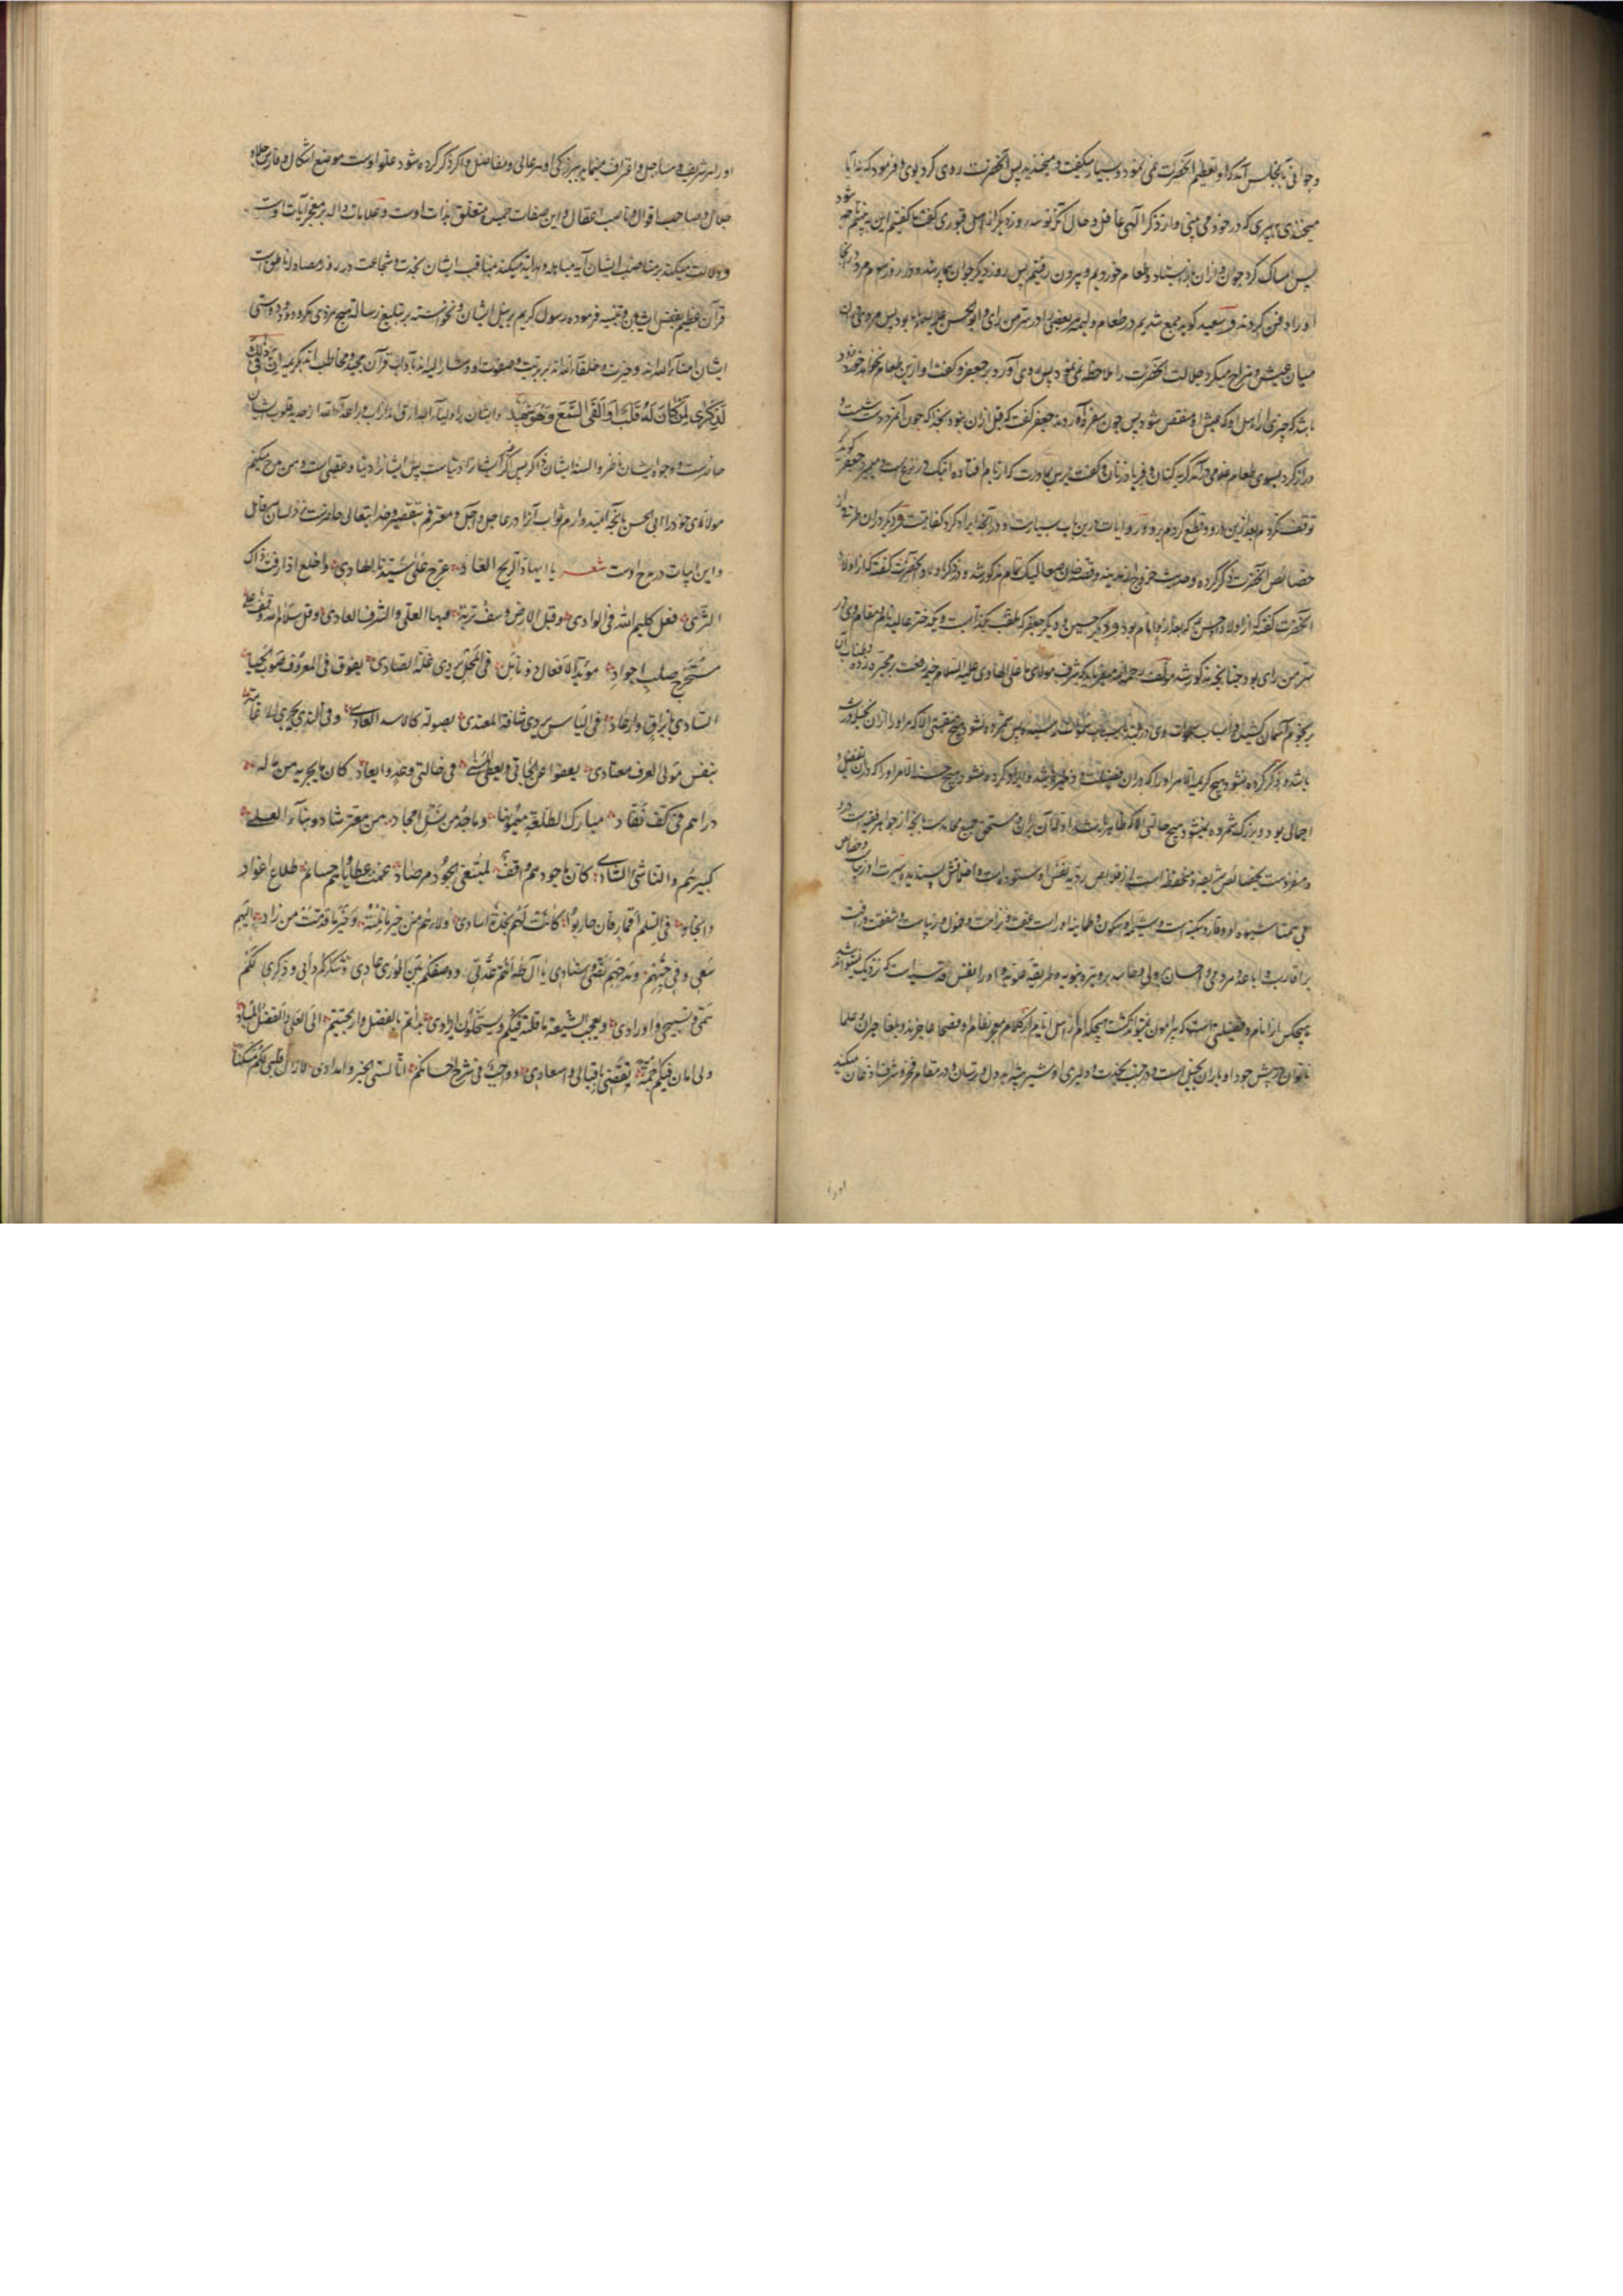 و جوانی بمجلس آمد که او تعظیم آنحضرت نمی نمود و بسیار میگفت و میخندید پس آنحضرت روی کرد بوی و فرمود که آیا
میخندی پری که در خود می بینی و از ذکر الهی غافل و حال آنکه تو سه روز دیگر از اهل قبوری گفت گفتیم این به بینیم چه شود
پس امساک کرد جوان از آن باز ایستاد و طعام خوردیم و بیرون رفتیم پس روز دیگر جوان بیمار شد و در روز سوم مرد و در آنجا
او را دفن کردند و سعید گوید جمع شدیم در طعام ولیمه بعضی از سر من رای و ابو الحسن علیه السلام با ما بود پس مردی در آن
میان عبث و مزاح میکرد جلالت آنحضرت را ملاحظه نمی نمود پس روی آورد بر جعفر و گفت او ازین طعام نخواهد خورد زود
باشد که خبری از اهل او که عیش او منغص شود پس چون سفره آوردند جعفر گفت که قبل ازان نبود بخدا که چون آنمرد دست شست و
دراز کرد بسوی طعام غلامی در آمد گریه کنان و فریاد زنان و گفت برس بمادرت که از بام افتاده اینک در نزع است و میمیرد جعفر گوید که
توقف نکردم بعد ازین درو و قطع کردم برو و روایات درین باب بسیارست و در آنچه ایراد کرد کفایت و دیگر در آن طرفی از
خصائص آنحضرت ذکر کرده و حدیث خروج از مدینه و قصه خان صعالیک تمام مذکور شد و ذکر اولاد آنحضرت گفته که از اولاد
آنحضرت گفته که از اولاد حسن که بعد از او امام بود و دیگر حسین و دیگر جعفر که ملقب بکذابست و یکدختر عالیه نام و مقام وی در
سر من رای بود چنانچه مذکور شد مؤلف رحمه الله میفرماید که شرف مولای ما علی الهادی علیه السلام خیمه رفعت بر مجره زده و طناب آن
بر نجوم آسمان کشیده
باشد و ذکر کرده نشود هیچ کریمه الا مر او را که در آن فضیلت و ذخیره باشد و ایراد کرده نشود هیچ حسنه الا مر او را که در آن تفضیل و
اجمالی بود و بزرگ شمرده نمیشود هیچ حالتی الا که ظاهر باشد او را آن و مستحق جمیع محامدست بآنچه از جواهر نفیسه است در و
و منفردست بخصائص شریفه و محفوظ است از نقایص ردیه نفس او ستوده است و اخلاقش پسندیده و سیرت او
بی همتا شیوه او وقار و سکینه است و شیمه او سکون و طمانینه او راست عفت و نزاهت و خمول در نباهت و شفقت و رافت
بر اقارب و اباعد و مروت و احسان بر ولی و حاسد بر وتیره نبویه و طریقه علویه و او را نفس قدسیه است که نزدیک نتواند شد
هیچکس از انام و فضیلتی است که پیرامون نتواند گشت هیچکدام از اهل ایام از کلام معجز نظام او فصحا عاجزند و بلغا حیران علما
ناتوان در پیش جود او باران بخیل است و در جنب نجدت و دلیری او شیر بیشه بد دل و ترسان و در مقام فخر و شرف اذعان میکند
او را
او را سر شریف و ساجل و اعتراف مینماید ببزرگی او سر عالی و مفاضل و اگر ذکر کرده شود علو اوست موضع اشکال و فارس جلاد و
جدال و صاحب اقوال و ناصب اعقال و این صفات خمس متعلق بذات اوست و علامات داله بر معجز آیات اوست
و دلالت میکند بر مناصب ایشان آیه مباهله و هدایه میکند مناقب ایشان نجدت و شجاعت در روز مصاولة ناطق است
قرآن عظیم بفضل ایشان و تنبیه فرموده رسول کریم بر نبل ایشان و نخواسته بر تبلیغ رسالة هیچ مزدی مگر مودت و دوستی
ایشان امناء الله اند و خیرت و خلفاء الله اند بر بریت و صفوت او و مشار الیه اند بآداب قرآن مجید و مخاطب اند بکریمه ان فی ذلک
لَذِکْرٰی لِمَنْ کَانَ لَهُ قَلْبٌ اَوْ اَلْقَی السَّمْعَ وَهُوَ شَهِیدٌ و ایشان بر اولیاء الله ارق اند از آب و بر اعداء الله از حدید قلوب ایشان
حاضرست و وجوه ایشان ناظر و السنه ایشان ذاکر پس اگر دیگری را دنیاست پس ایشانرا دنیا و عقبی است و من مدح میکنم
مولای خود را ابی الحسن بآنچه امید وارم ثواب آنرا در عاجل و آجل و معترفم بتقصیر و خدایتعالی حاضرست نزد لسان هر قائل
و این ابیات در مدح اوست شعر یا ایها ذا الرایح الغادی عرج علی سیدنا الهادی واخلع اذا رفت ذاک
الثری فعل کلیم الله فی الوادی وقبل الارض وسف تربة فیها العلی والشرف العادی وقل سلام الله وقف علی
مستخرج من صلب اجواد مؤید الافعال ذو نائل فی المحل یروی غلة الصادی یفوق فی المعروف صوب الحیا
الساری بابراق وارعاد فی الباس یردی شافة المعتدی بصولة کالاسد العادی وفی الندی یجری الی غایة
بنفس مولی للعرف معتاد یعفو عن الجانی ویعطی المنی فی حالتی وعد وایعاد کان ما یحویه من ماله
دراهم فی کف نقاد مبارک الطلعة میمونها وماجد من نسل امجاد من معشر شادوا بناء العلی
کبیرهم والناشئ الشادی کانما جودهم واقف لمبتغی الجود بمرصاد عمت عطایاهم واحسانهم طلاع اغوار
وانجاد فی السلم اقمار فان حاربوا کانت لهم نجدة آساد ولاؤهم من خیر ما نلته وخیر ما قدمت من زاد الیهم
سعیی وفی حبهم ومدحهم نصی واسنادی یا آل طه انتم عدتی ووصفکم بین الوری عادی وشکرکم دابی وذکری لکم
همی وتسبیحی واورادی ویعجب الشیعة ما قلته فیکم ویستحلون ایرادی بداتم بالفضل وارتحتم الی العلی والفضل للبادی
ولی امان فیکم جمة تقضی باقبالی واسعادی وواجب فی شرع احسانکم انالتی الخیر وامدادی لا زال قلبی لکم مسکنا